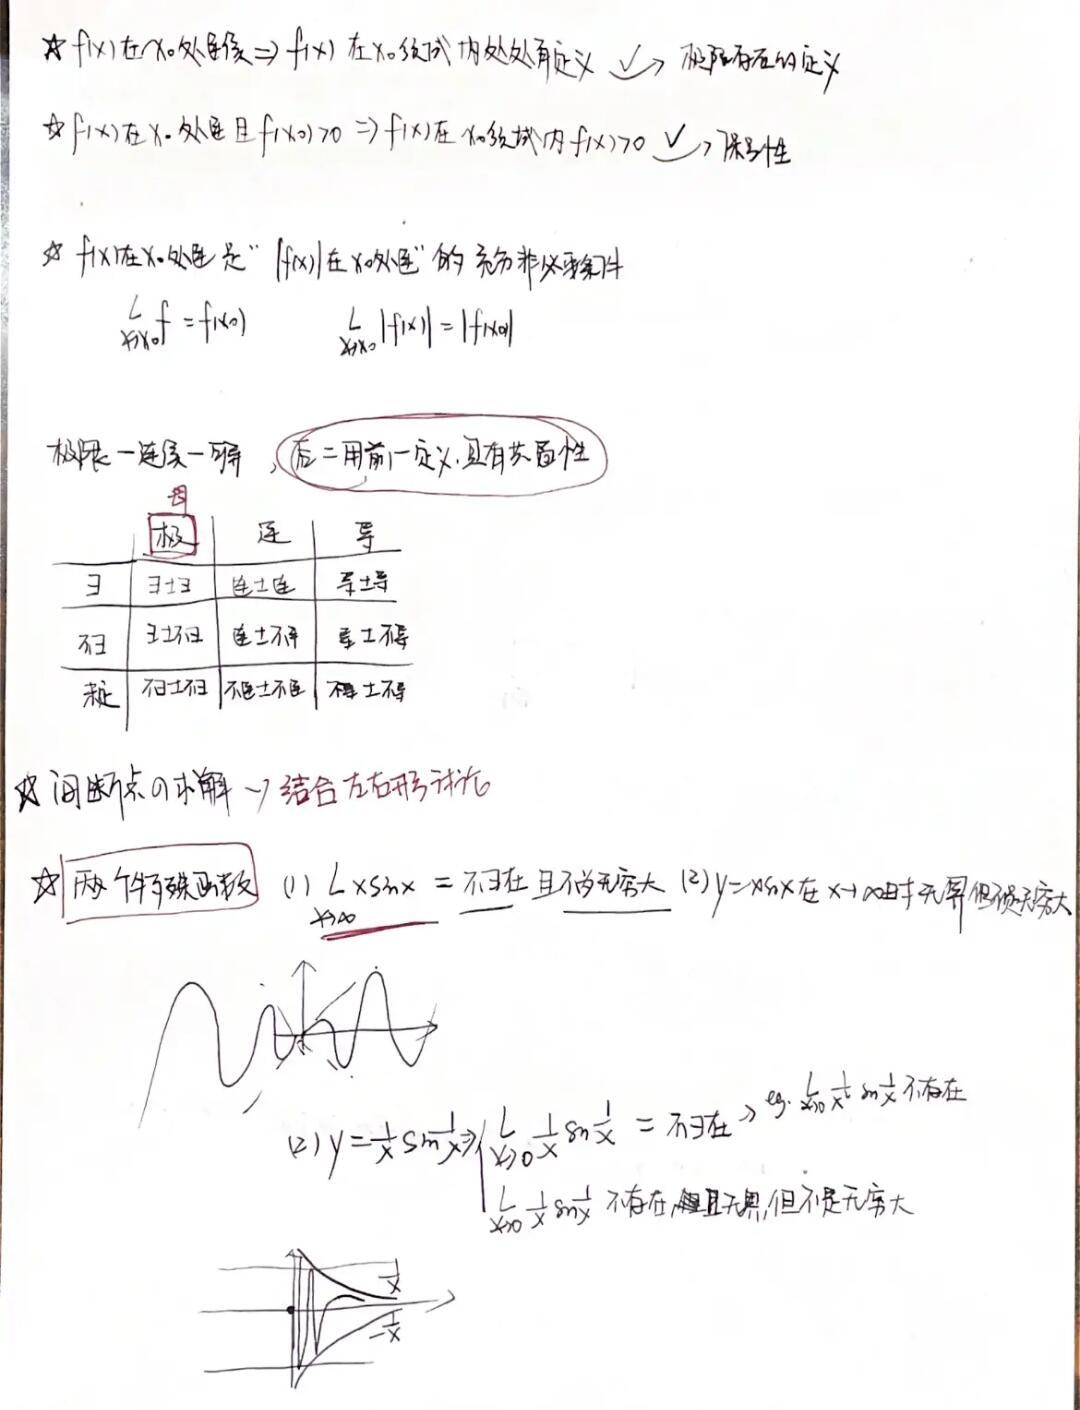 ☆ f(x)在x₀处连续⇒f(x)在x₀领域内处处有定义 ✓→极限存在的定义
☆ f(x)在x₀处连且f(x₀)>0⇒f(x)在x₀领域内f(x)>0 ✓→保号性
☆ f(x)在x₀处连是"|f(x)|在x₀处连"的充分非必要条件
L x→x₀ f = f(x₀) L x→x₀ |f(x)| = |f(x₀)|
极限—连续—可导,后二用前一定义,具有共同性
母
极 连 导
∃ ∃±∃ 连±连 导±导
不∃ ∃±不∃ 连±不连 导±不导
未定 不∃±不∃ 不连±不连 不导±不导
☆ 间断点の求解→结合左右形讨论
☆ 两个特殊函数 (1) L x→∞ xsinx = 不∃在且不为无穷大 (2) y=xsinx在x→∞时无界但不是无穷大
(2) y=1/x sin1/x ⇒ L x→0 1/x sin1/x = 不∃在→eg. L x→0 1/x sin1/x 不存在
L x→0 1/x sin1/x 不存在,且无界,但不是无穷大
1/x
-1/x